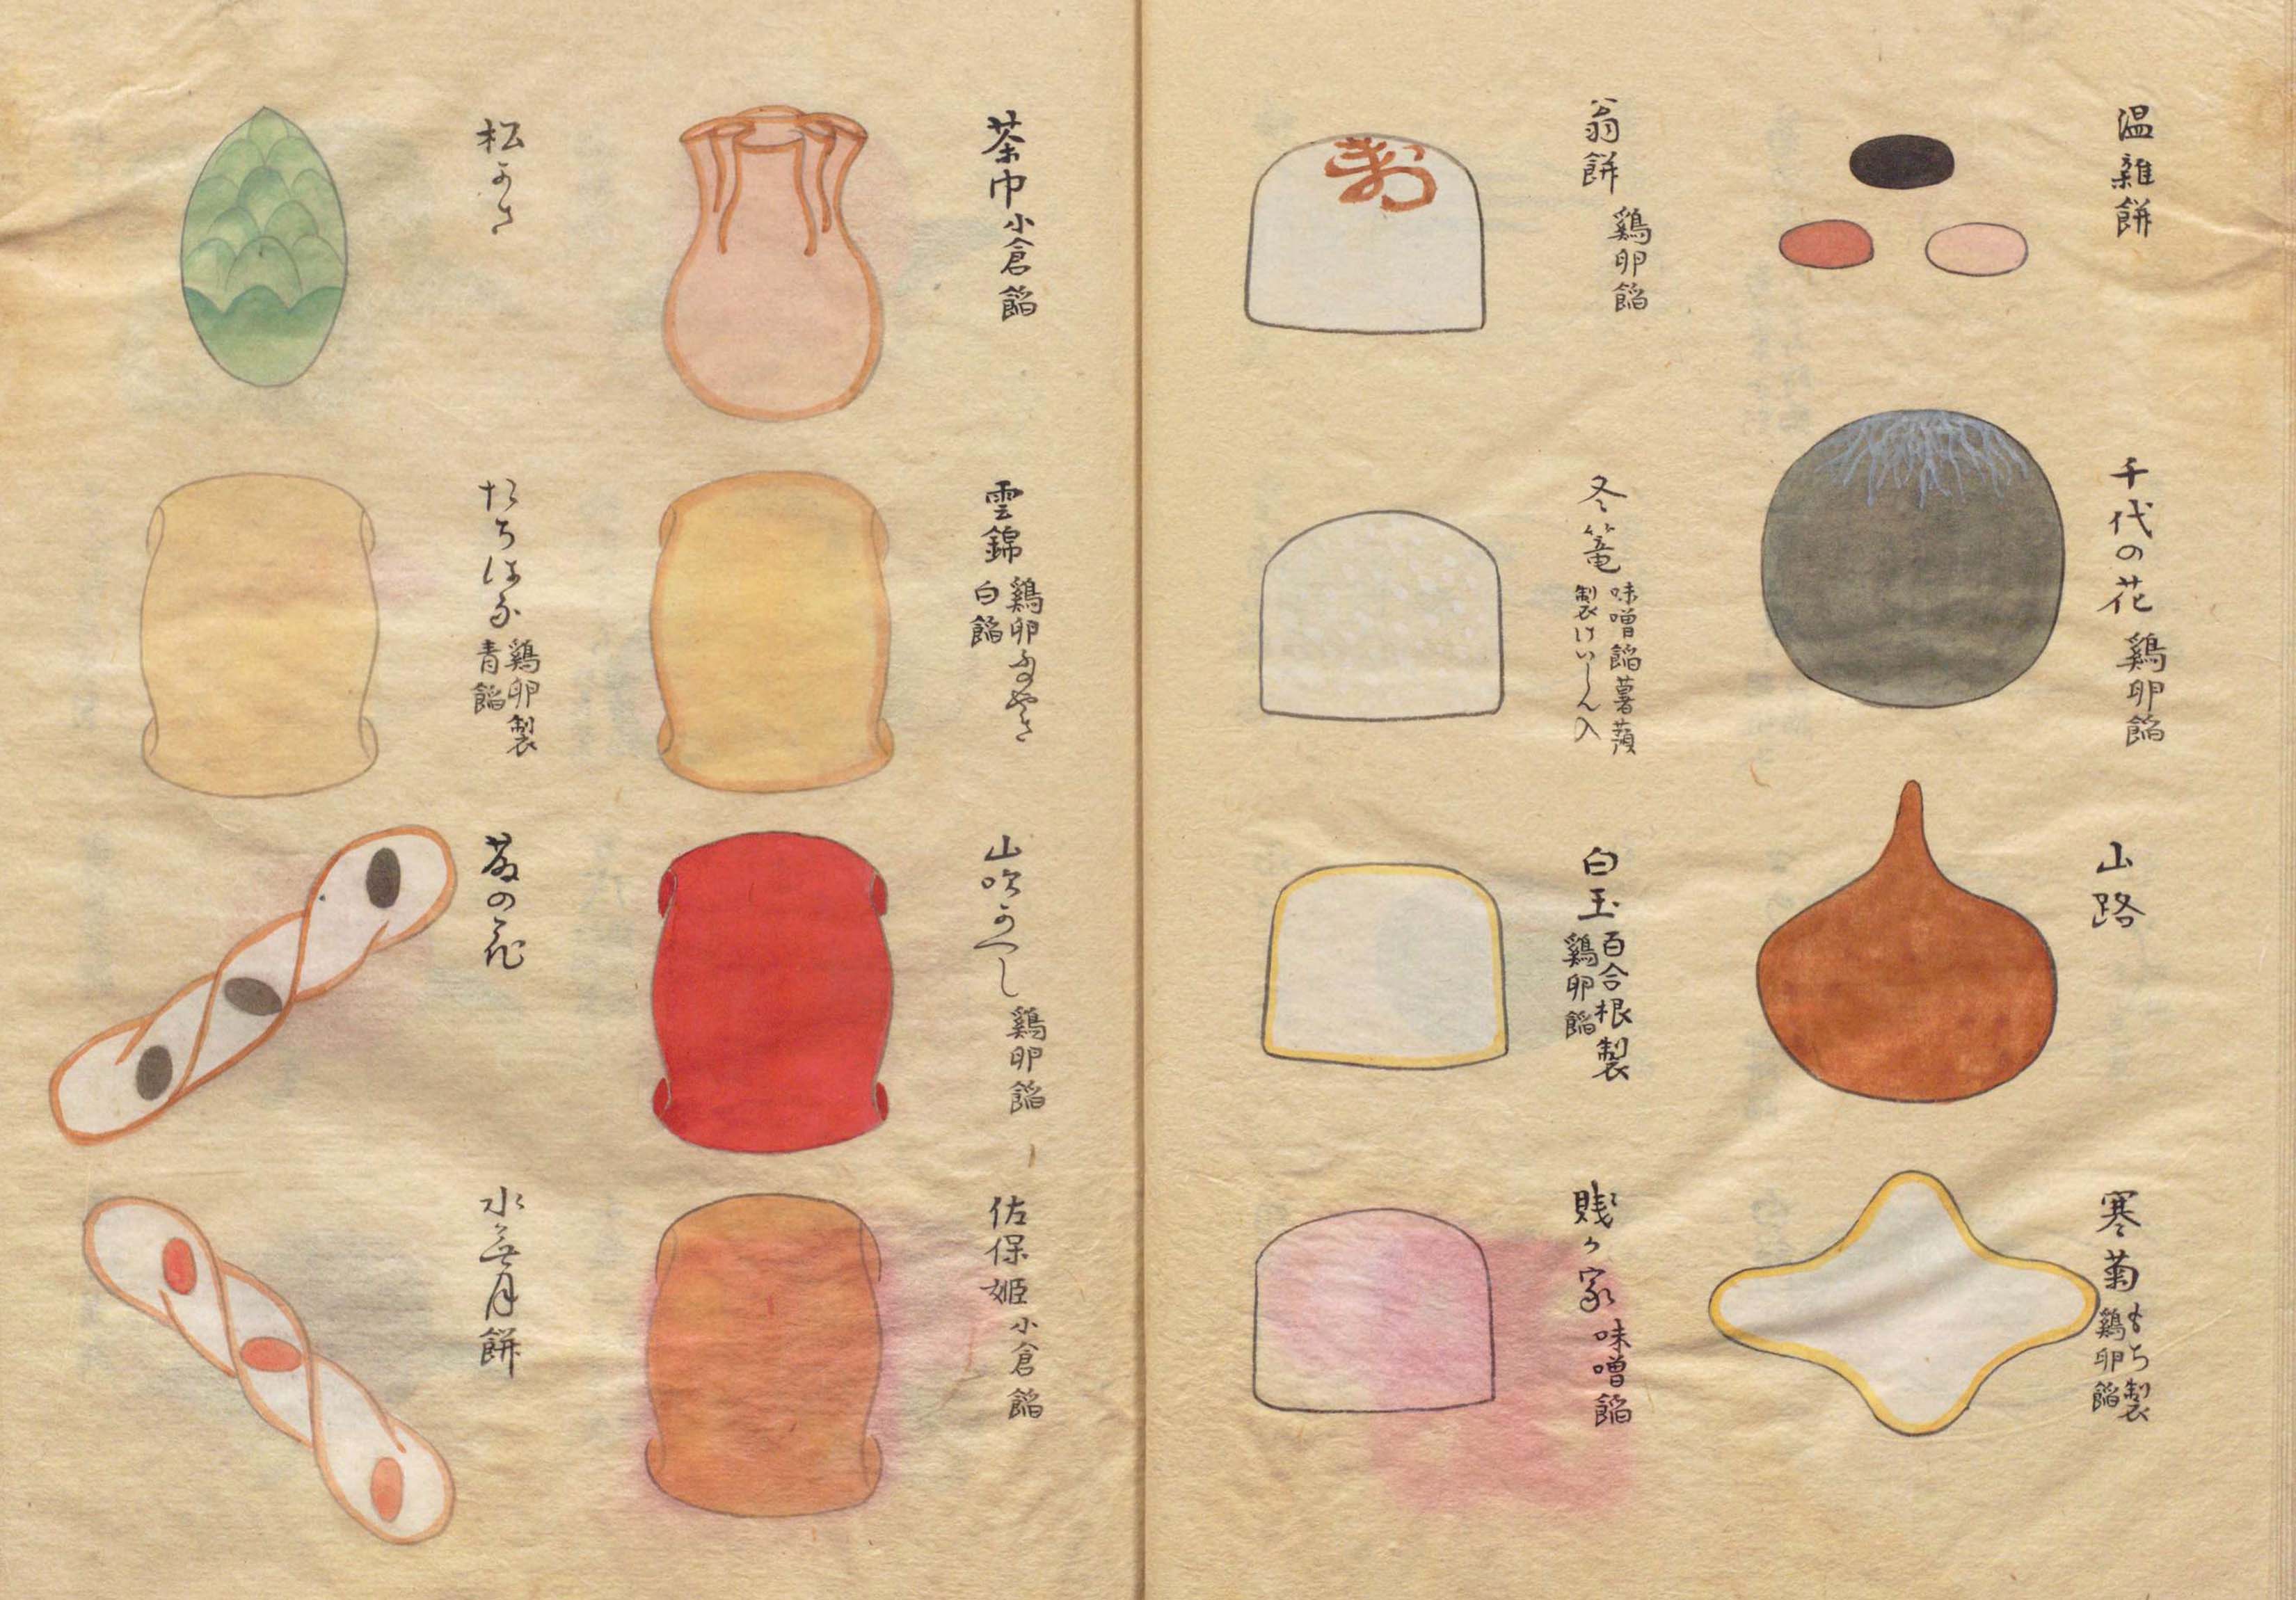 温雑餅
千代の花 鶏卵餡
山路
寒菊 もち製
鶏卵餡
翁餅 鶏卵餡
寿
冬篭 味噌餡薯蕷
製けいらん入
白玉 百合根製
鶏卵餡
賎ヶ家 味噌餡
茶巾 小倉餡
雲錦 鶏卵
白餡
山吹かへし 鶏卵餡
佐保姫 小倉餡
松かさ
たちはな 鶏卵製
青餡
の花
水無月餅